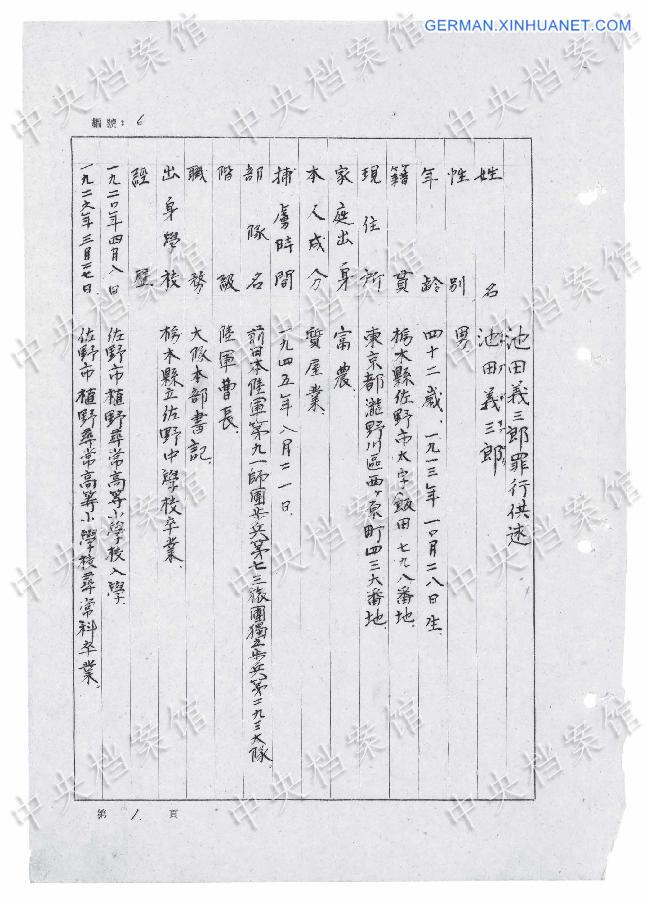 GERMAN.XINHUANET.COM
編號：6
池田義三郎罪行供述
姓名 池田義三郎
性別 男
年齡 四十二歳、一九一三年一〇月二八日生
籍貫 栃木縣佐野市大字飯田七九八番地
現住所 東京都瀧野川區西ヶ原町四三六番地
家庭出身 富農
本人成分 質屋業
捕虜時間 一九四五年八月二一日
部隊名 前日本陸軍第九一師團歩兵第七三旅團獨立歩兵第二九三大隊
階級 陸軍曹長
職務 大隊本部書記
出身學校 栃木縣立佐野中學校卒業
經歷
一九二〇年四月八日 佐野市植野尋常高等小學校入學
一九二六年三月二七日 佐野市植野尋常高等小學校尋常科卒業
第1頁
中央档案馆